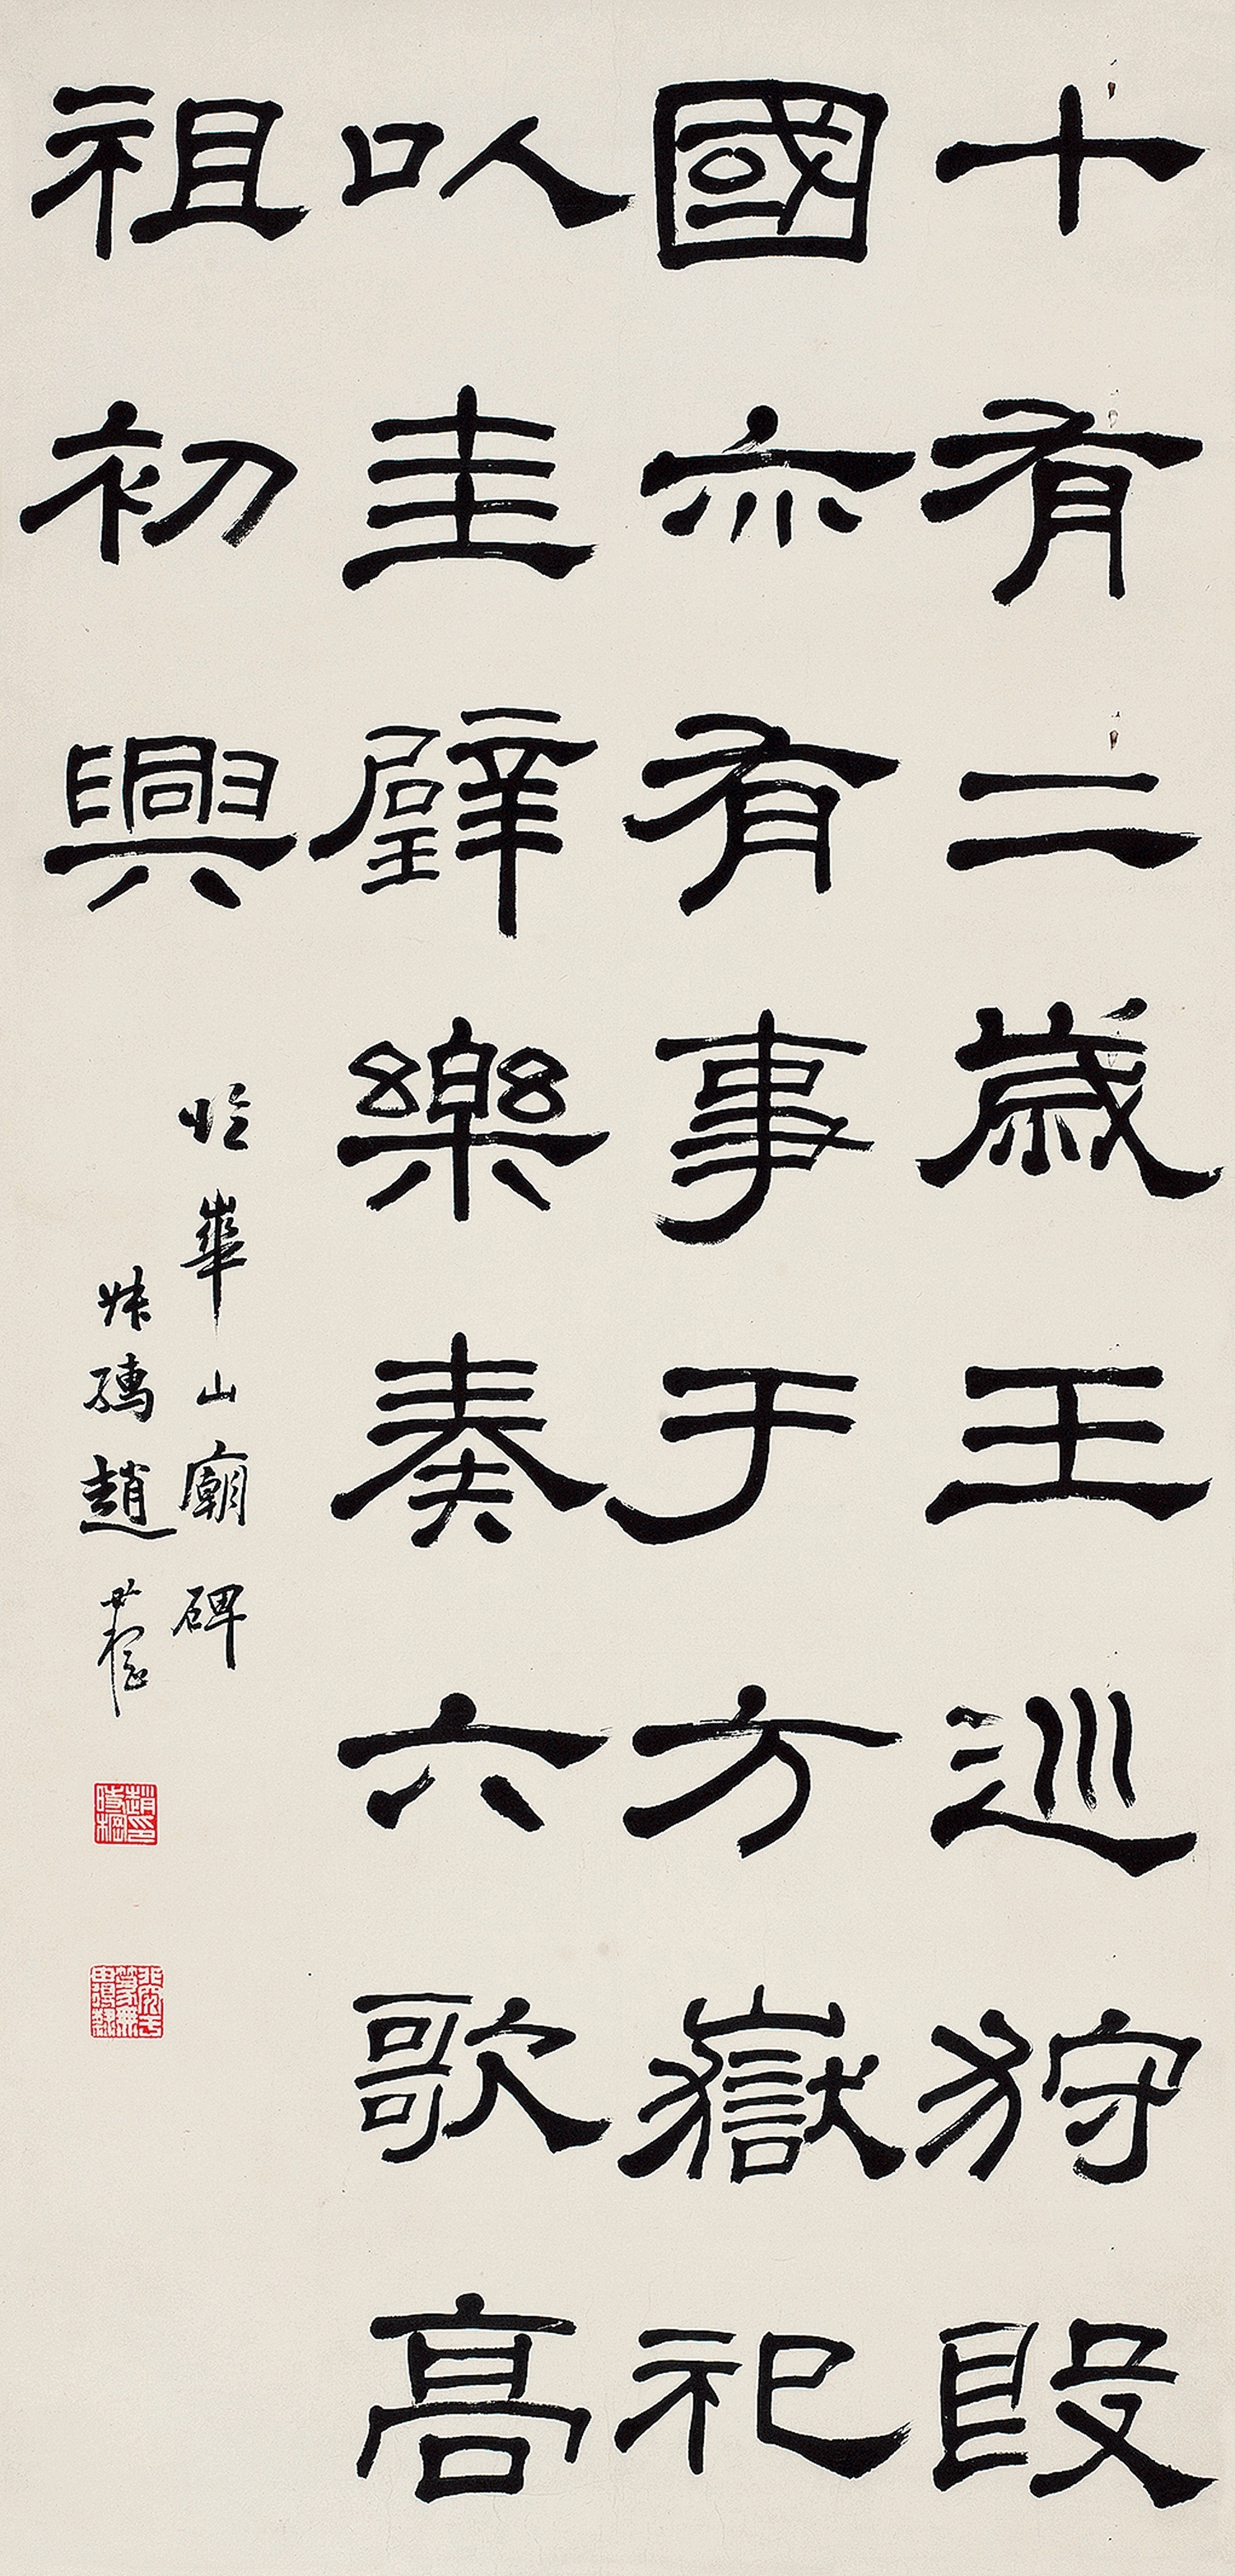 十有二歲王巡狩殷
國亦有事于方嶽祀
以圭璧樂奏六歌高
祖初興
臨華山廟碑
叔孺趙時棢
趙時棡印